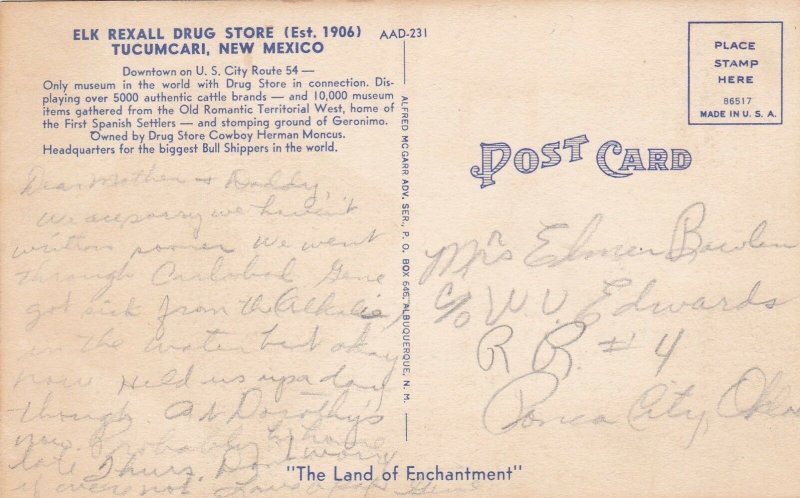 ELK REXALL DRUG STORE (Est. 1906)
TUCUMCARI, NEW MEXICO
AAD-231
Downtown on U. S. City Route 54 —
Only museum in the world with Drug Store in connection. Dis-
playing over 5000 authentic cattle brands — and 10,000 museum
items gathered from the Old Romantic Territorial West, home of
the First Spanish Settlers — and stomping ground of Geronimo.
Owned by Drug Store Cowboy Herman Moncus.
Headquarters for the biggest Bull Shippers in the world.
Dear Mother + Daddy,
We are sorry we haven't
written sooner We went
through Carlsbad Gene
got sick from the Alkalie
in the water but okay
now Held us up a day
though At Dorothy's
now. Probably be home
late Thurs. Don't worry
if we're not
ALFRED MC GARR ADV. SER., P. O. BOX 646, ALBUQUERQUE, N. M.
POST CARD
PLACE
STAMP
HERE
86517
MADE IN U. S. A.
Mrs Elmer Bowden
c/o W. V. Edwards
R R. # 4
Ponca City, Okla
"The Land of Enchantment"